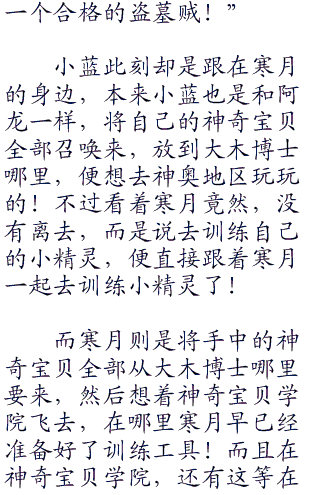 一个合格的盗墓贼！”
小蓝此刻却是跟在寒月
的身边，本来小蓝也是和阿
龙一样，将自己的神奇宝贝
全部召唤来，放到大木博士
哪里，便想去神奥地区玩玩
的！不过看着寒月竟然，没
有离去，而是说去训练自己
的小精灵，便直接跟着寒月
一起去训练小精灵了！
而寒月则是将手中的神
奇宝贝全部从大木博士哪里
要来，然后想着神奇宝贝学
院飞去，在哪里寒月早已经
准备好了训练工具！而且在
神奇宝贝学院，还有这等在